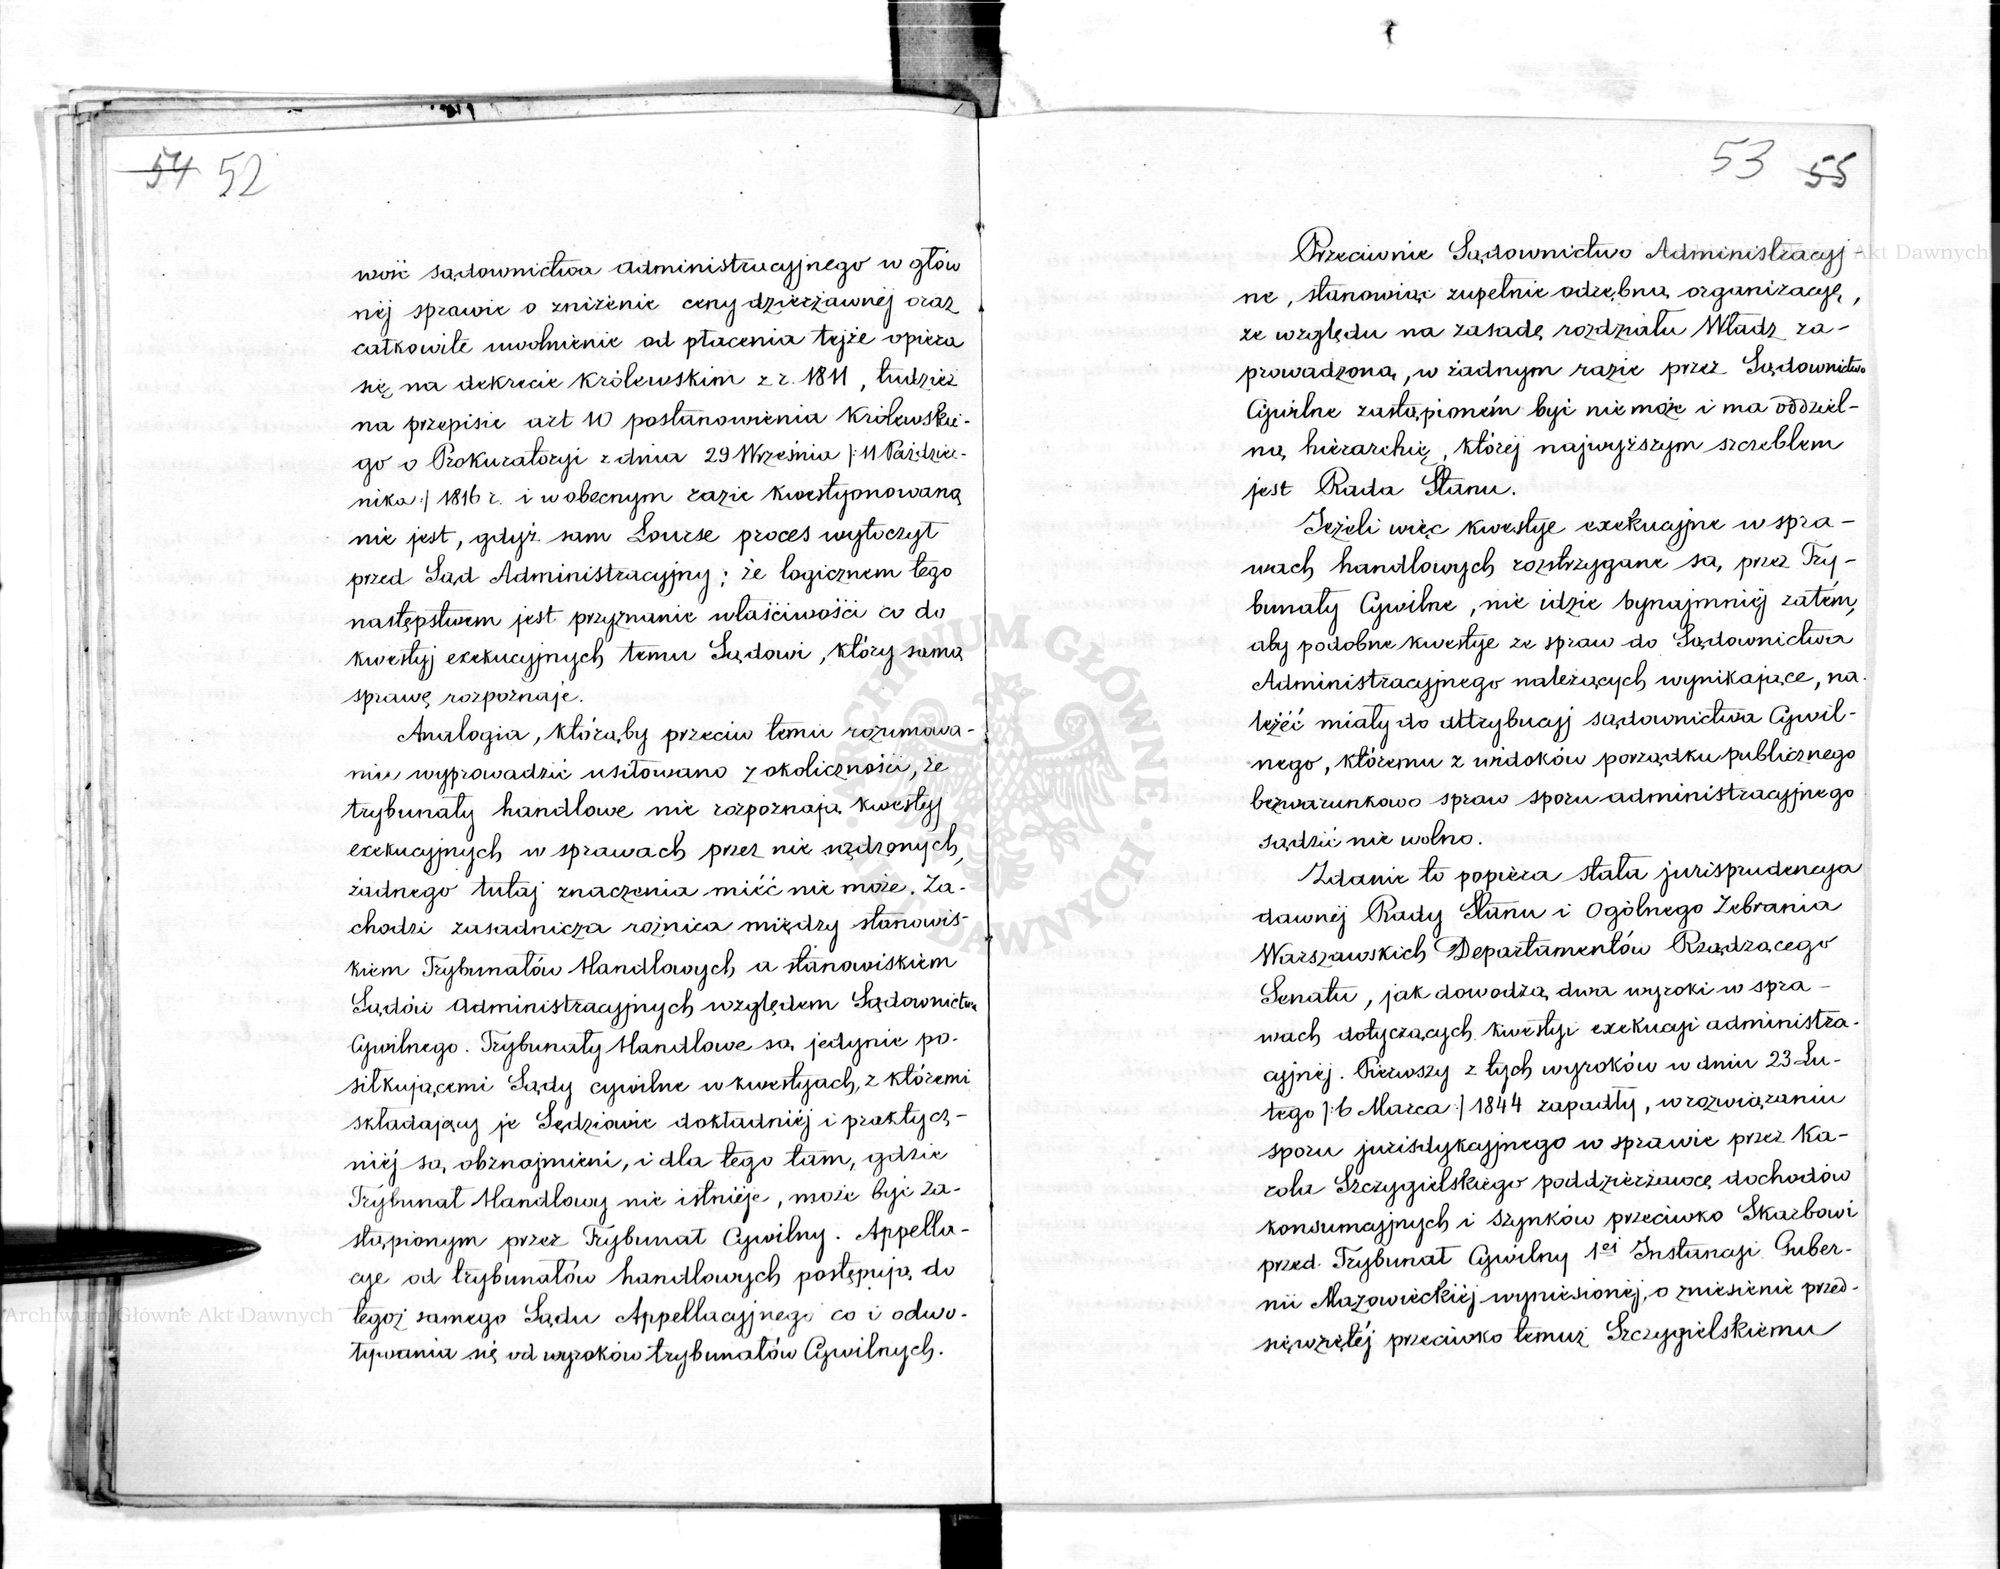 54 52
wość sądownictwa administracyjnego w głów
nėj sprawie o zniżenie ceny dzierżawnėj oraz
całkowite uwolnienie od płacenia tejże opiera
się na dekrecie Królewskim z r. 1811, tudzież
na przepisie art 10 postanowienia Królewskie-
go o Prokuratoryi z dnia 29 Września /:11 Paździer-
nika:/ 1816 r. i w obecnym razie kwestyonowaną
nie jest, gdyż sam Lourse proces wytoczył
przed Sąd Administracyjny; że logicznem tego
następstwem jest przyznanie właściwości co do
kwestyj exekucyjnych temu Sądowi, który samą
sprawę rozpoznaje.
Analogia, którąby przeciw temu rozumowa-
niu wyprowadzić usiłowano z okoliczności, że
trybunały handlowe nie rozpoznają kwestyj
exekucyjnych w sprawach przez nie sądzonych,
żadnego tutaj znaczenia mićć nie może. Za-
chodzi zasadnicza różnica między stanowis-
kiem Trybunałów Handlowych a stanowiskiem
Sądów administracyjnych względem Sądownictwa
Cywilnego. Trybunały Handlowe są jedynie po-
siłkującemi Sądy cywilne w kwestyach, z któremi
składający je Sędziowie dokładniėj i praktycz-
niėj są obznajmieni, i dla tego tam, gdzie
Trybunał Handlowy nie istnieje, może być za-
stąpionym przez Trybunał Cywilny. Appella-
cye od trybunałów handlowych postępują do
tegoż samego Sądu Appellacyjnego co i odwo-
ływania się od wyroków trybunałów Cywilnych.
53 55
Przeciwnie Sądownictwo Administracyj-
ne, stanowiąc zupełnie odrębną organizacyę,
ze względu na zasadę rozdziału Władz za-
prowadzoną, w żadnym razie przez Sądownictwo
Cywilne zastąpioném być nie może i ma oddziel-
ną hierarchię, którėj najwyższym szczeblem
jest Rada Stanu.
Jeżeli więc kwestye exekucyjne w spra-
wach handlowych rozstrzygane są, przez Try-
bunały Cywilne, nie idzie bynajmniėj zatém,
aby podobne kwestye ze spraw do Sądownictwa
Administracyjnego należących wynikające, na-
leżéć miały do attrybucyj sądownictwa Cywil-
nego, któremu z widoków porządku publicznego
bezwarunkowo spraw sporu administracyjnego
sądzić nie wolno.
Zdanie to popiera stała jurisprudencya
dawnėj Rady Stanu i Ogólnego Zebrania
Warszawskich Departamentów Rządzącego
Senatu, jak dowodzą dwa wyroki w spra-
wach dotyczących kwestyi exekucyi administra-
cyjnėj. Pierwszy z tych wyroków w dniu 23 Lu-
tego /:6 Marca:/ 1844 zapadły, w rozwiązaniu
sporu jurisdykcyjnego w sprawie przez Ka-
rola Szczygielskiego poddzierżawcę dochodów
konsumcyjnych i szynków przeciwko Skarbowi
przed Trybunał Cywilny 1ėj Instancyi Guber-
nii Mazowieckiėj wyniesionėj, o zniesienie przed-
sięwziętėj przeciwko temuż Szczygielskiemu
ARCHIWUM GŁÓWNE AKT DAWNYCH
Archiwum Główne Akt Dawnych
Archiwum Główne Akt Dawnych